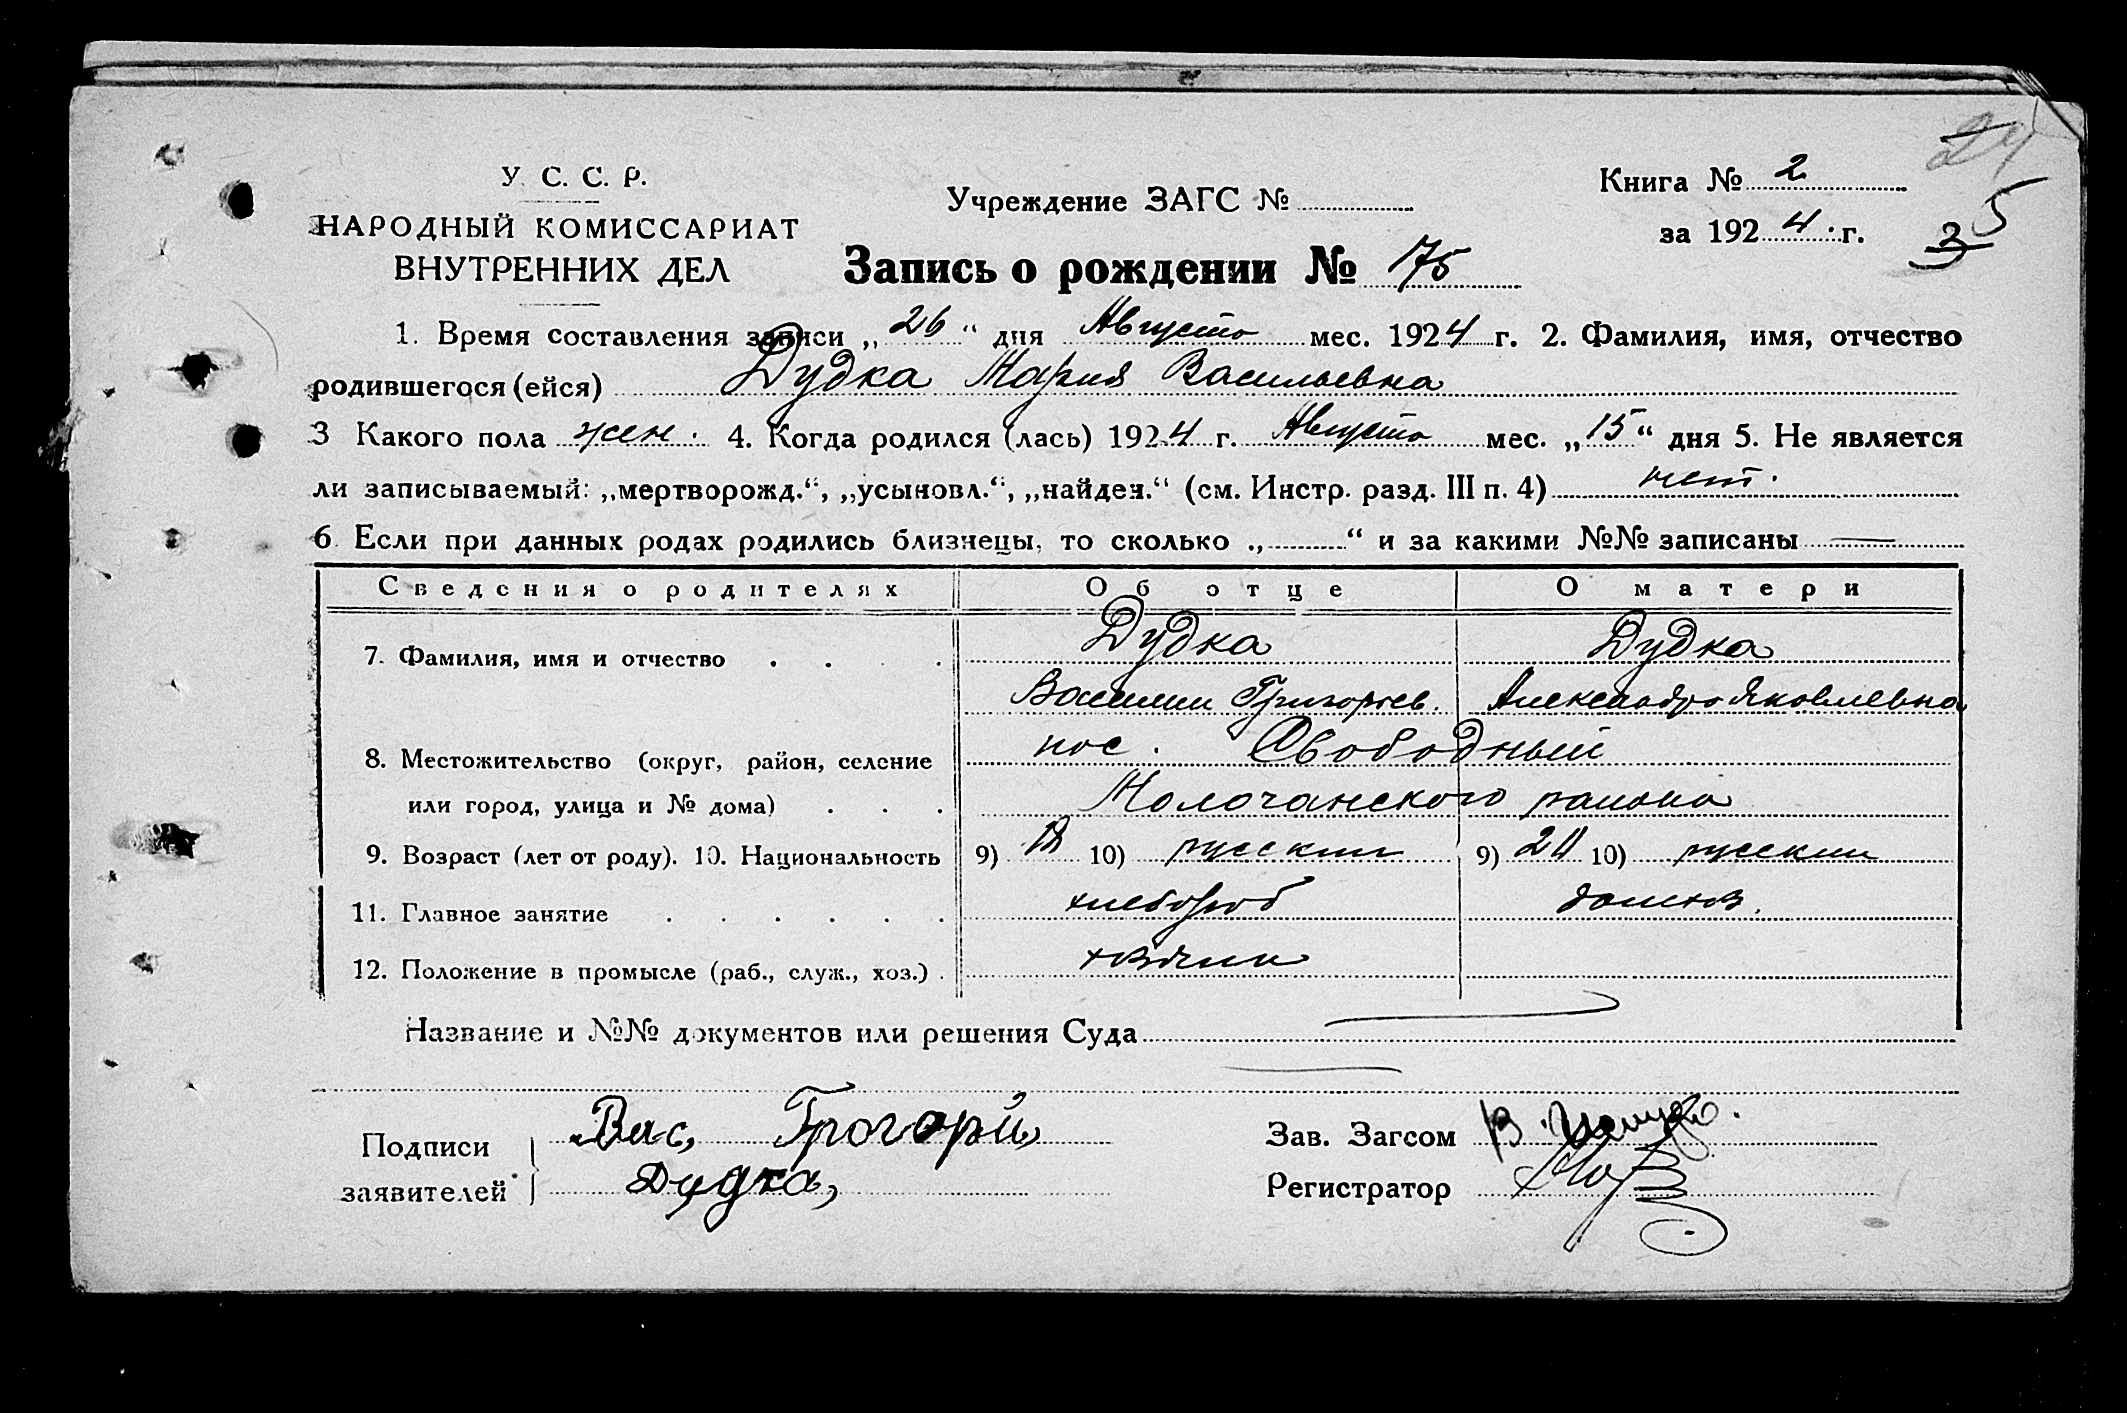 24
У. С. С. Р.
НАРОДНЫЙ КОМИССАРИАТ
ВНУТРЕННИХ ДЕЛ
Учреждение ЗАГС №
Книга № 2
за 1924 г.
3 5
Запись о рождении № 175
1. Время составления записи „26“ дня Августа мес. 1924 г. 2. Фамилия, имя, отчество
родившегося (ейся) Дудка Мария Васильевна
3 Какого пола жен. 4. Когда родился (лась) 1924 г. Августа мес. „15“ дня 5. Не является
ли записываемый: „мертворожд.“, „усыновл.“, „найден.“ (см. Инстр. разд. III п. 4) нет.
6. Если при данных родах родились близнецы, то сколько „ “ и за какими №№ записаны —
Сведения о родителях Об отце О матери
7. Фамилия, имя и отчество . . . . Дудка Дудка
Василий Григорьев. Александра Яковлевна
8. Местожительство (округ, район, селение пос. Свободный
или город, улица и № дома) . . . Молочанского района
9. Возраст (лет от роду). 10. Национальность 9) 10) русский 9) 10) русский
11. Главное занятие . . . . . . хлебороб домхоз.
12. Положение в промысле (раб., служ., хоз.) .
Название и №№ документов или решения Суда
Подписи Вас, Грогорий
заявителей Дудка,
Зав. Загсом В.
Регистратор